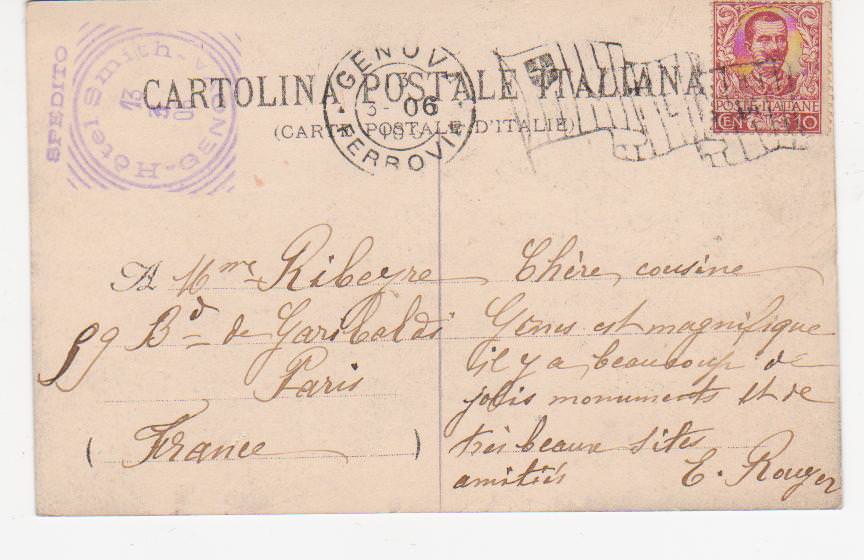 SPEDITO
Hôtel Smith
CARTOLINA POSTALE ITALIANA
(CARTE POSTALE D'ITALIE)
GENOVA
06
FERROVIA
POSTE ITALIANE
CENT. 10
A Mme Ribeyre
59 Bd de Garibaldi
Paris
( France )
Chère cousine
Gênes est magnifique
il y a beaucoup de
jolis monuments et de
très beaux sites
amitiés E. Rouyer